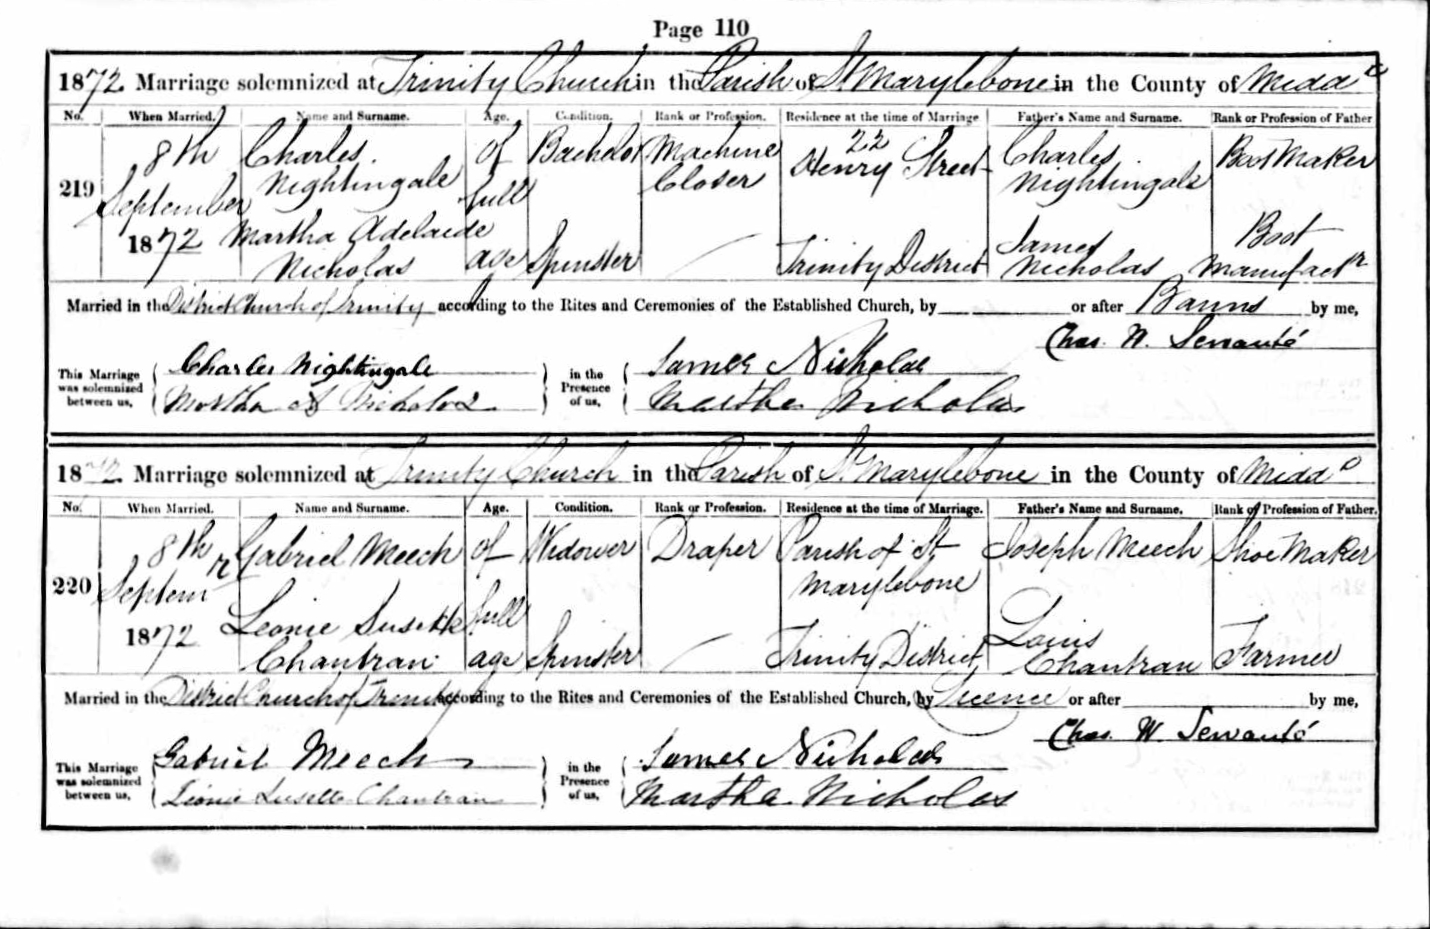 Page 110
1872 Marriage solemnized at Trinity Church in the Parish of St Marylebone in the County of Middx
No. When Married. Name and Surname. Age. Condition. Rank or Profession. Residence at the time of Marriage Father's Name and Surname. Rank or Profession of Father
219 8th September 1872 Charles Nightingale of full age Bachelor Machine Closer 22 Henry Street Charles Nightingale Boot Maker
Martha Adelaide Nicholas Spinster Trinity District James Nicholas Boot Manufactr
Married in the District Church of Trinity according to the Rites and Ceremonies of the Established Church, by or after Banns by me,
Chas. W.
This Marriage was solemnized between us, Charles Nightingale in the Presence of us, James Nicholas
Martha A Nicholas Martha Nicholas
1872 Marriage solemnized at Trinity Church in the Parish of St Marylebone in the County of Middx
No. When Married. Name and Surname. Age. Condition. Rank or Profession. Residence at the time of Marriage. Father's Name and Surname. Rank of Profession of Father.
220 8th Septemr 1872 Gabriel Meech of full age Widower Draper Parish of St Marylebone Joseph Meech Shoe Maker
Leonie Susette Chantran Spinster Trinity District Louis Chantran Farmer
Married in the District Church of Trinity according to the Rites and Ceremonies of the Established Church, by Licence or after by me,
Chas. W.
This Marriage was solemnized between us, Gabriel Meech in the Presence of us, James Nicholas
Leonie Susette Chantran Martha Nicholas